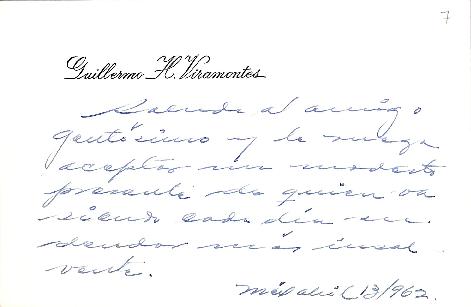 7
Guillermo H. Viramontes
Saluda al amigo
gentísimo y le ruega
aceptar un modesto
presente de quien va
siendo cada día su
deudor más insol
vente.
13/962.